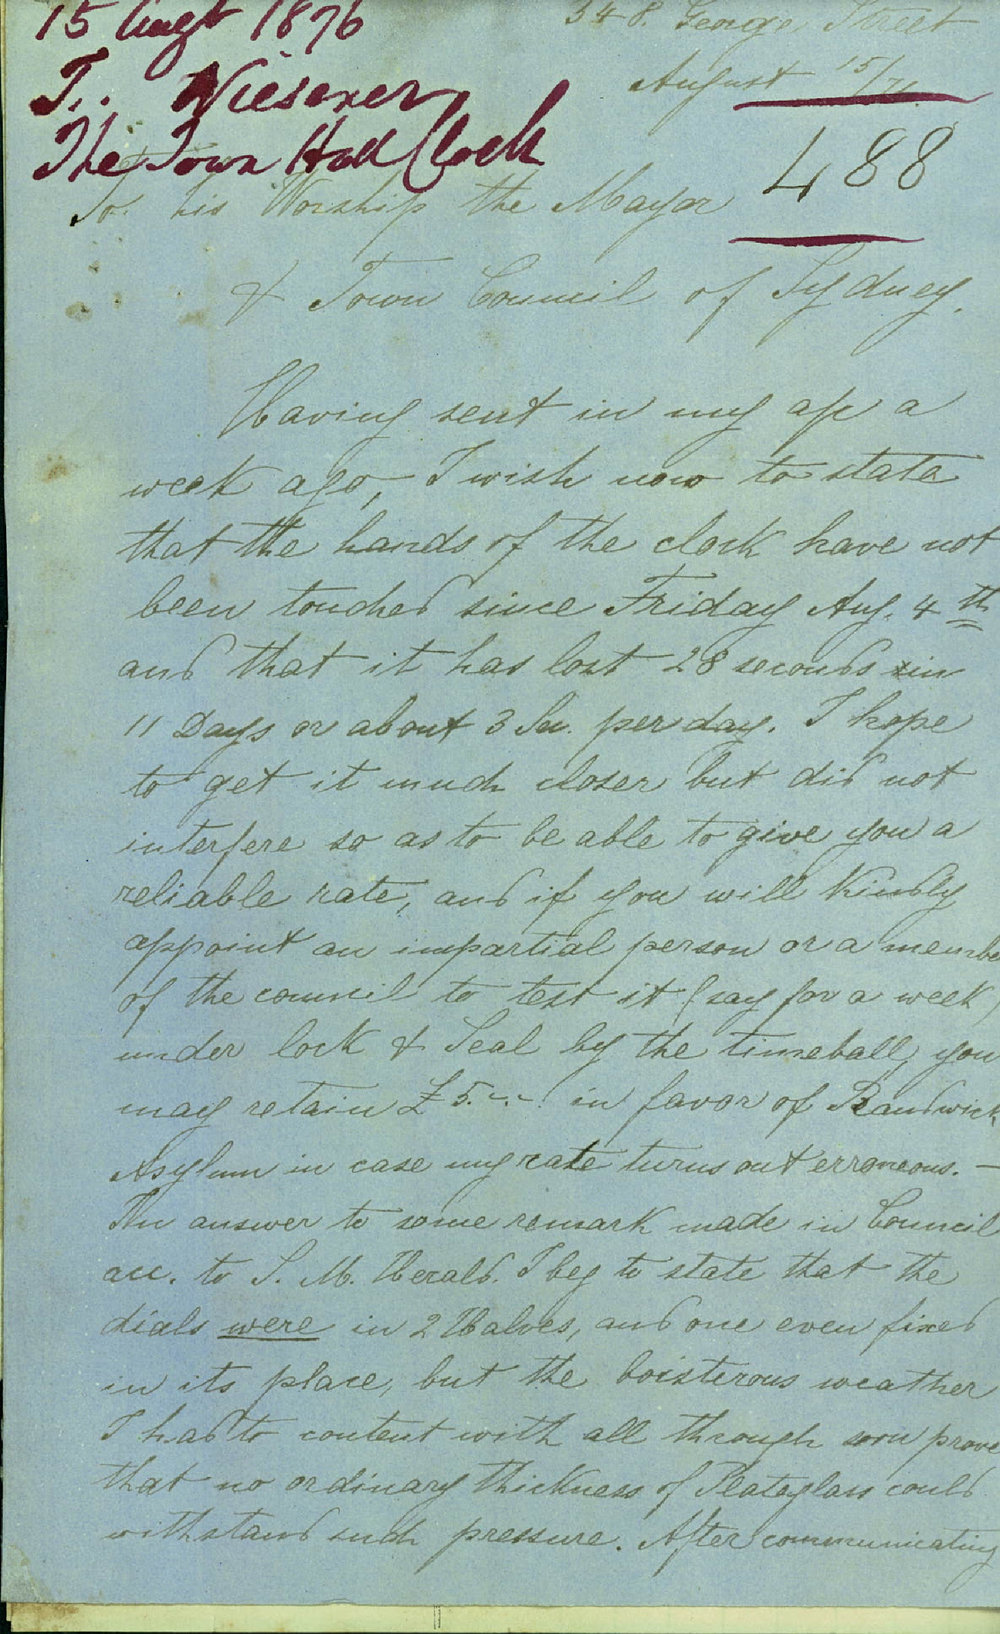 15 Augt 1876
T. Wiesener
The Town Hall Clock
348. George Street
August 15/76
488
To his Worship the Mayor
& Town Council of Sydney.
Having sent in my a/c a
week ago, I wish now to state
that the hands of the clock have not
been touched since Friday Aug. 4th
and that it has lost 28 seconds in
11 Days or about 3 Sec. per day. I hope
to get it much closer but did not
interfere so as to be able to give you a
reliable rate, and if you will kindly
appoint an impartial person or a membe
of the council to test it (say for a week)
under lock & Seal by the timeball, you
may retain £5.-.- in favor of Randwick
Asylum in case my rate turns out erroneous. —
In answer to some remark made in Council
acc. to S. M. Herald. I beg to state that the
dials were in 2 Halves, and one even fixed
in its place, but the boisterous weather
I had to content with all through soon prove
that no ordinary thickness of Plateglass could
withstand such pressure. After communicating